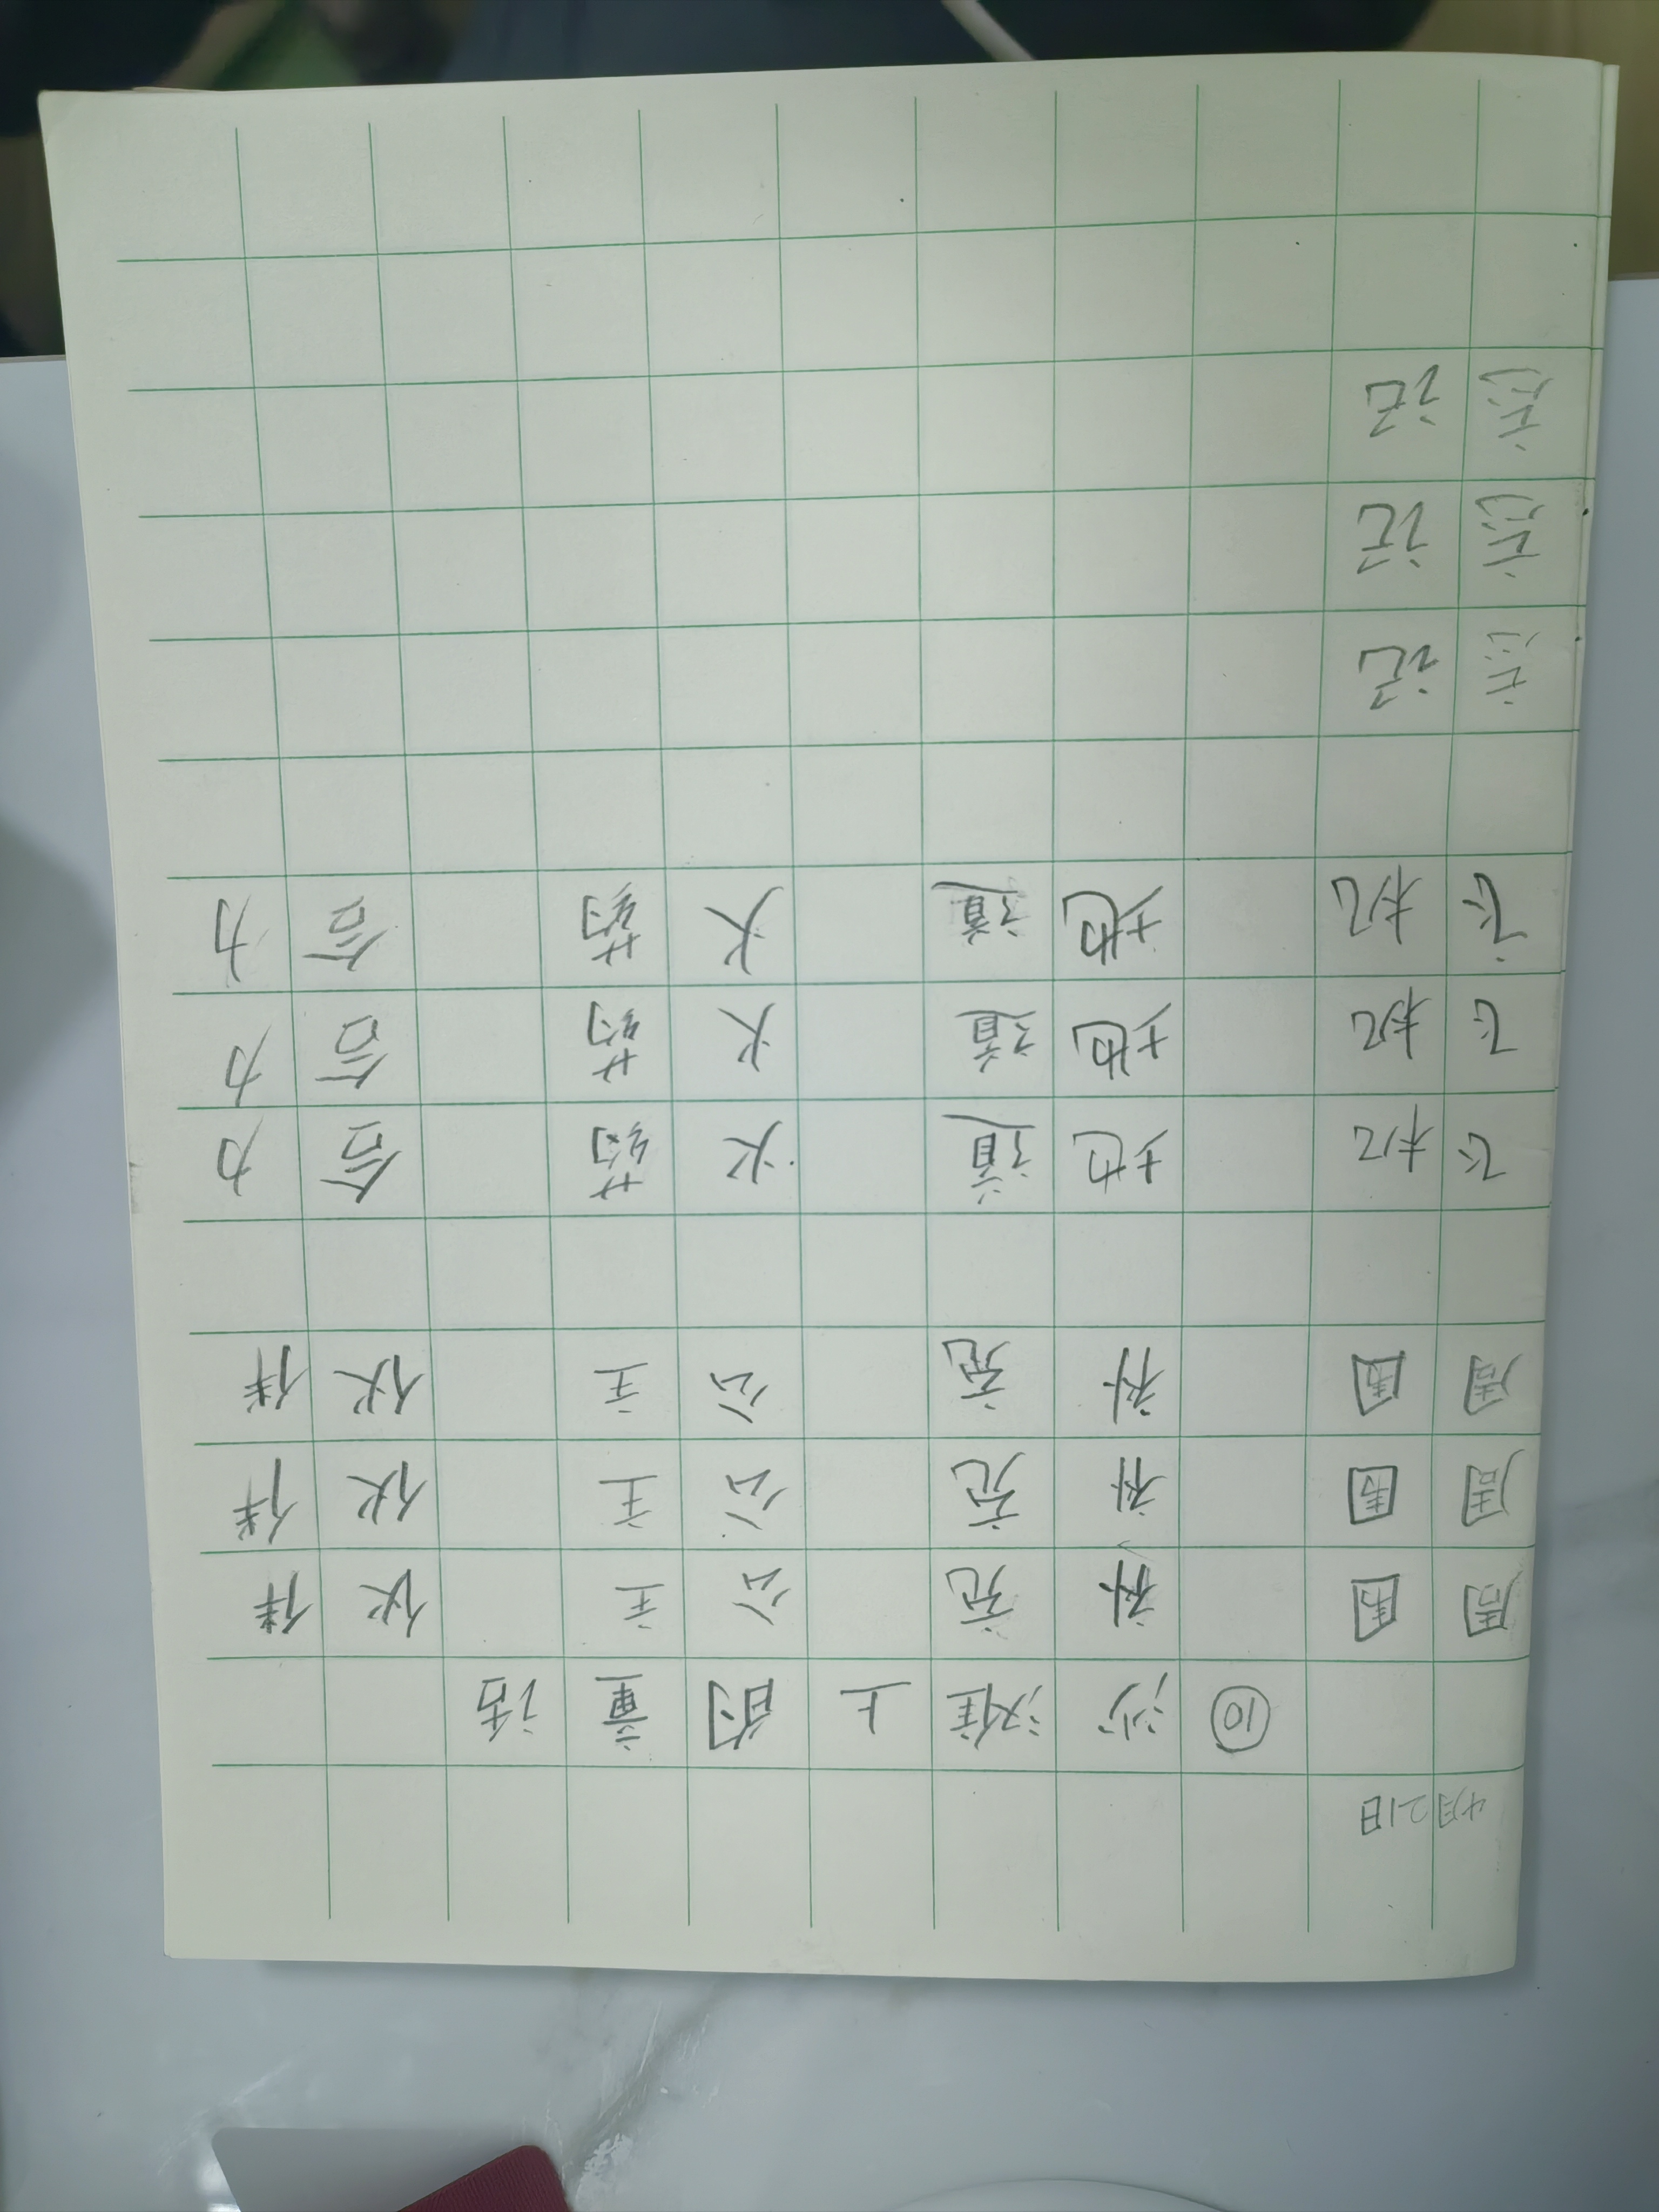 4月21日
⑩沙滩上的童话
周围 补充 公主 伙伴
周围 补充 公主 伙伴
周围 补充 公主 伙伴
飞机 地道 火药 合力
飞机 地道 火药 合力
飞机 地道 火药 合力
忘记
忘记
忘记